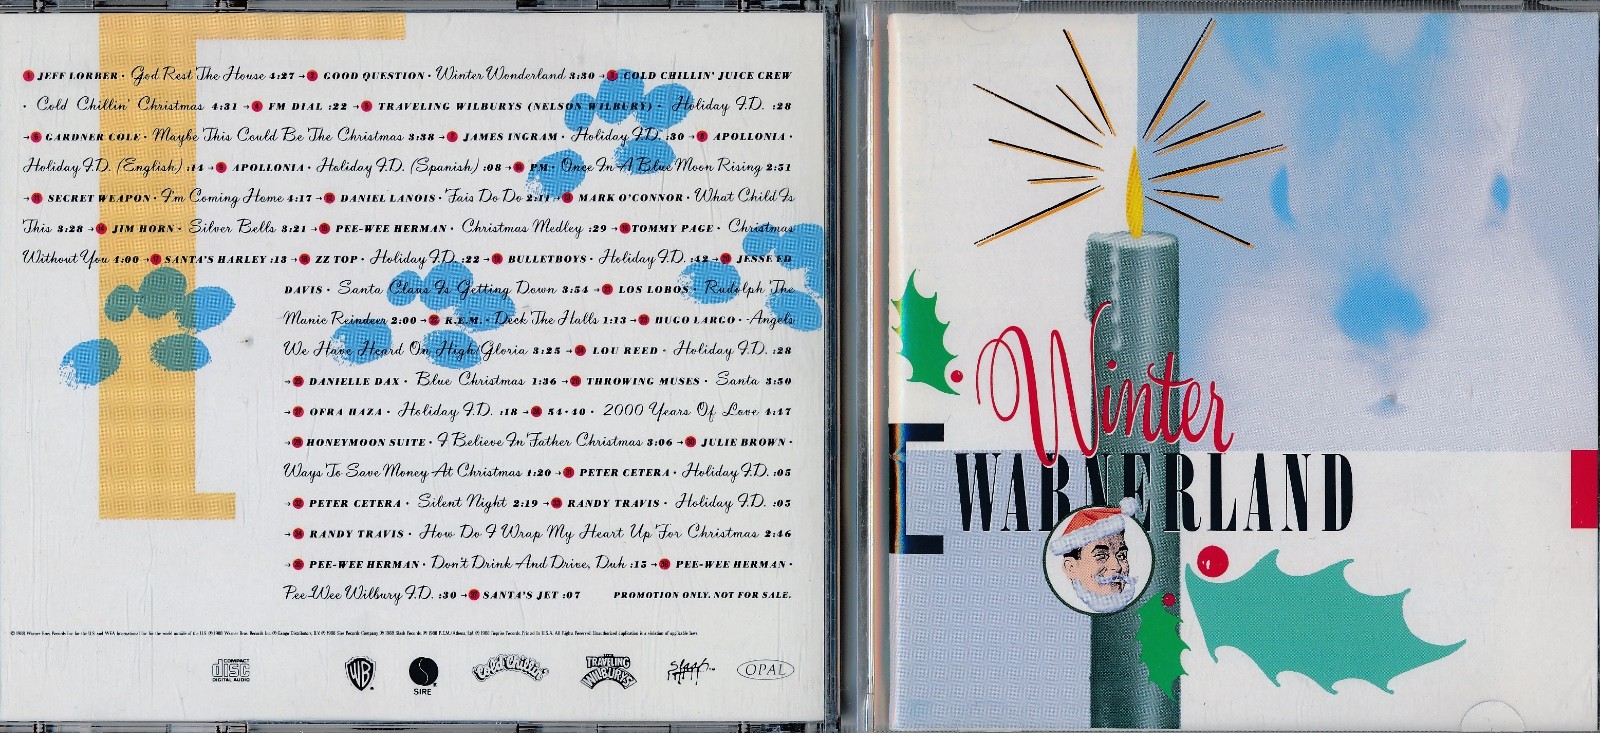 1 JEFF LORBER · God Rest The House 4:27 → 2 GOOD QUESTION · Winter Wonderland 3:30 → 3 COLD CHILLIN' JUICE CREW
· Cold Chillin' Christmas 4:31 → 4 FM DIAL :22 → 5 TRAVELING WILBURYS (NELSON WILBURY) · Holiday I.D. :28
→ 6 GARDNER COLE · Maybe This Could Be The Christmas 3:38 → 7 JAMES INGRAM · Holiday I.D. :30 → 8 APOLLONIA ·
Holiday I.D. (English) :14 → 9 APOLLONIA · Holiday I.D. (Spanish) :08 → 10 PM · Once In A Blue Moon Rising 2:51
→ 11 SECRET WEAPON · I'm Coming Home 4:17 → 12 DANIEL LANOIS · Fais Do Do 2:11 → 13 MARK O'CONNOR · What Child Is
This 3:28 → 14 JIM HORN · Silver Bells 3:21 → 15 PEE-WEE HERMAN · Christmas Medley :29 → 16 TOMMY PAGE · Christmas
Without You 4:00 → 17 SANTA'S HARLEY :13 → 18 ZZ TOP · Holiday I.D. :22 → 19 BULLETBOYS · Holiday I.D. :42 → 20 JESSE ED
DAVIS · Santa Claus Is Getting Down 3:54 → 21 LOS LOBOS · Rudolph The
Manic Reindeer 2:00 → 22 R.E.M. · Deck The Halls 1:13 → 23 HUGO LARGO · Angels
We Have Heard On High/Gloria 3:25 → 24 LOU REED · Holiday I.D. :28
→ 25 DANIELLE DAX · Blue Christmas 1:36 → 26 THROWING MUSES · Santa 3:50
→ 27 OFRA HAZA · Holiday I.D. :18 → 28 54·40 · 2000 Years Of Love 4:47
→ 29 HONEYMOON SUITE · I Believe In Father Christmas 3:06 → 30 JULIE BROWN ·
Ways To Save Money At Christmas 1:20 → 31 PETER CETERA · Holiday I.D. :05
→ 32 PETER CETERA · Silent Night 2:19 → 33 RANDY TRAVIS · Holiday I.D. :05
→ 34 RANDY TRAVIS · How Do I Wrap My Heart Up For Christmas 2:46
→ 35 PEE-WEE HERMAN · Don't Drink And Drive, Duh :15 → 36 PEE-WEE HERMAN ·
Pee-Wee Wilbury I.D. :30 → 37 SANTA'S JET :07 PROMOTION ONLY. NOT FOR SALE.
COMPACT
disc
DIGITAL AUDIO
WB
SIRE
Cold Chillin'
TRAVELING
WILBURYS
Slash
OPAL
Winter
WARNERLAND